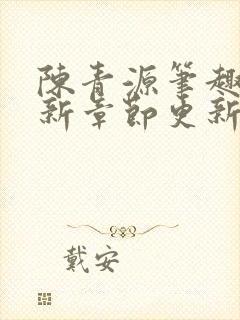 陳青源筆趣
新章節更新
戴安